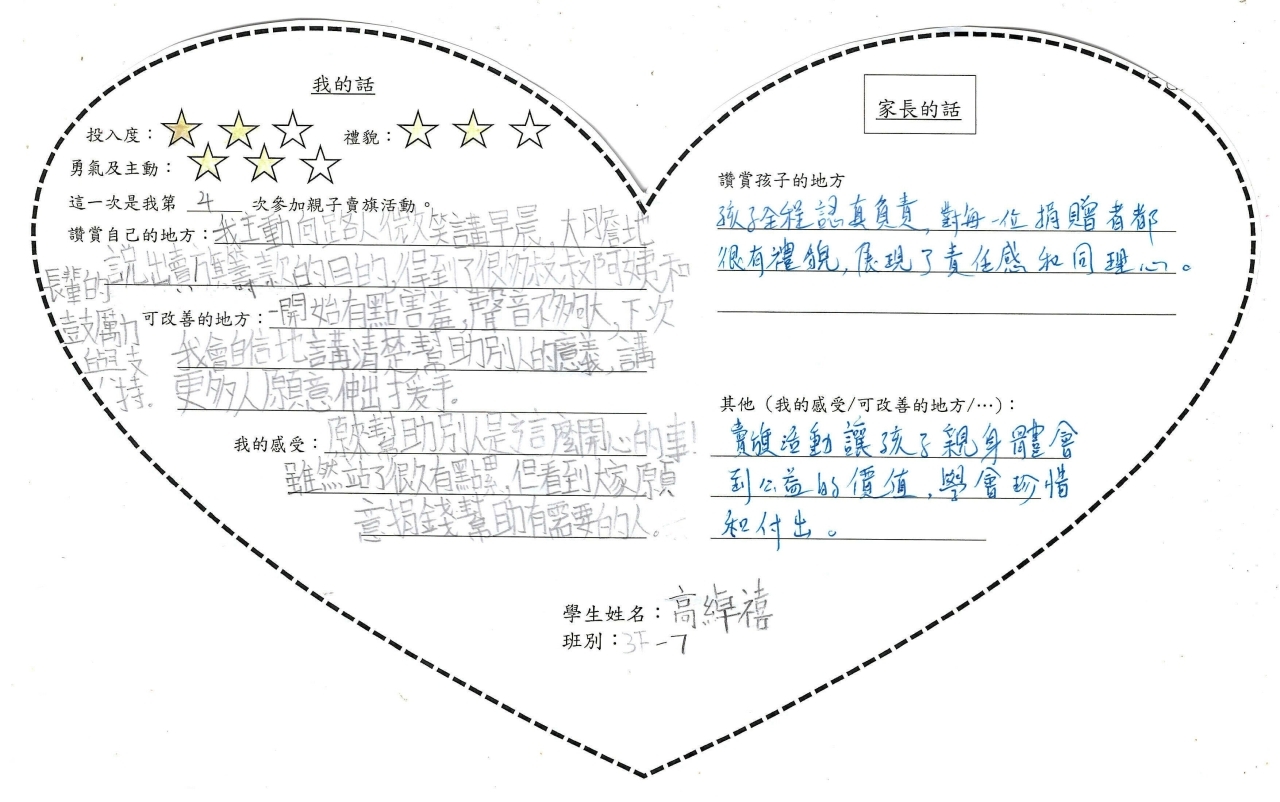 我的話
投入度：
禮貌：
勇氣及主動：
這一次是我第 4 次參加親子賣旗活動。
讚賞自己的地方：我主動向路人微笑講早晨，大膽地
說出賣旗籌款的目的，得到了很多叔叔阿姨和
長輩的
鼓勵
與支
持.
可改善的地方：一開始有點害羞，聲音不夠大，下次
我會自信地講清楚幫助別人的意義，講
更多人願意伸出援手.
我的感受：原來幫助別人是這麼開心的事!
雖然站了很久有點累，但看到大家願
意捐錢幫助有需要的人。
家長的話
讚賞孩子的地方
孩子全程認真負責，對每一位捐贈者都
很有禮貌，展現了責任感和同理心。
其他（我的感受/可改善的地方/…）：
賣旗活動讓孩子親身體會
到公益的價值，學會珍惜
和付出。
學生姓名：高綽禧
班別：3F-7